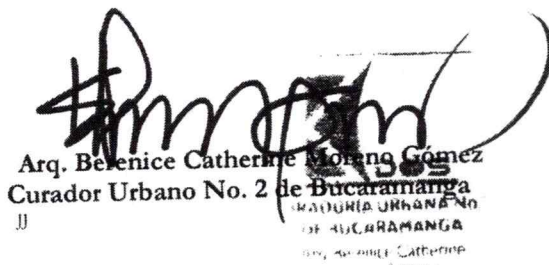 Arq. Berenice Catherine Moreno Gómez
Curador Urbano No. 2 de Bucaramanga
JJ
DOS
URBANA No
DE BUCARAMANGA
Catherine